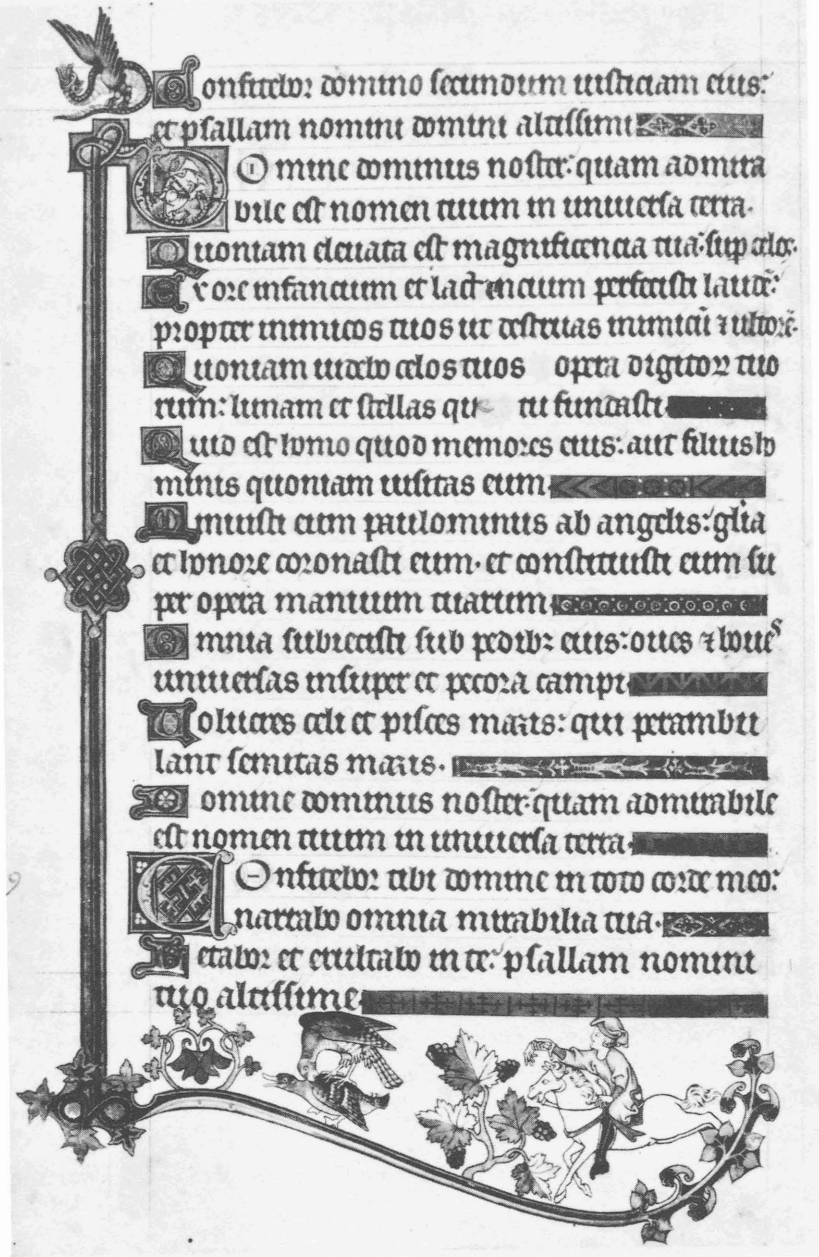 Confitebor domino secundum iusticiam eius:
et psallam nomini domini altissimi
Domine dominus noster: quam admira
bile est nomen tuum in universa terra.
Quoniam elevata est magnificencia tua: sup celos.
Ex ore infancium et lactencium perfecisti laudē:
propter inimicos tuos ut destruas inimicū ⁊ ultorē.
Quoniam videbo celos tuos opera digitoꝝ tuo
rum: lunam et stellas tu fundasti
Quid est homo quod memores eius: aut filius ho
minis quoniam visitas eum
Minuisti eum paulominus ab angelis: glīa
et honore coronasti eum. et constituisti eum su
per opera manuum tuarum
Omnia subiecisti sub pedibꝫ eius: oves ⁊ boves
universas insuper et pecora campi
Volucres celi et pisces maris: qui perambu
lant semitas maris.
Domine dominus noster: quam admirabile
est nomen tuum in universa terra
Confitebor tibi domine in toto corde meo:
narrabo omnia mirabilia tua.
Letabor et exultabo in te: psallam nomini
tuo altissime